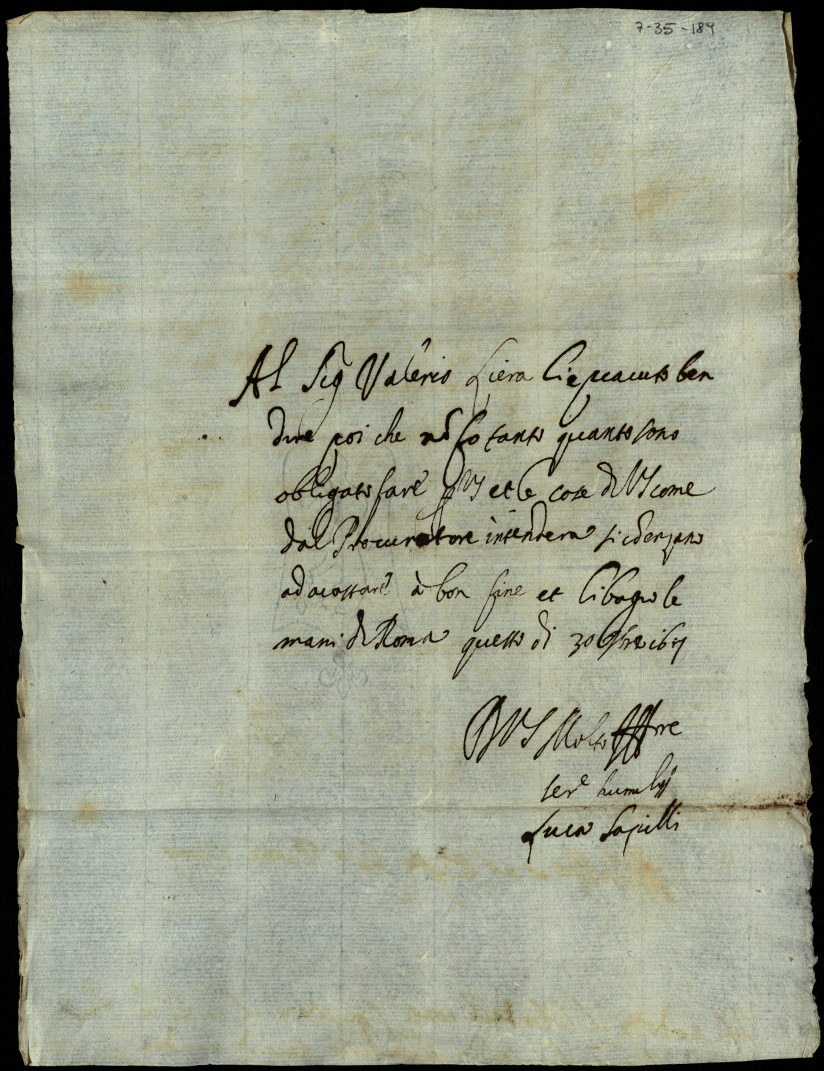 7-35-189
Al Sig Valerio Liera li è piaciuto ben
dire poi che nō fo tanto quanto sono
obligato fare p VS et le cose di VS come
dal Procuratore intendera si
ad acostare à bon fine et li bagio le
mani di Roma questo di 30
D VS Molto
ser.e humiliss
Luca Sapilli